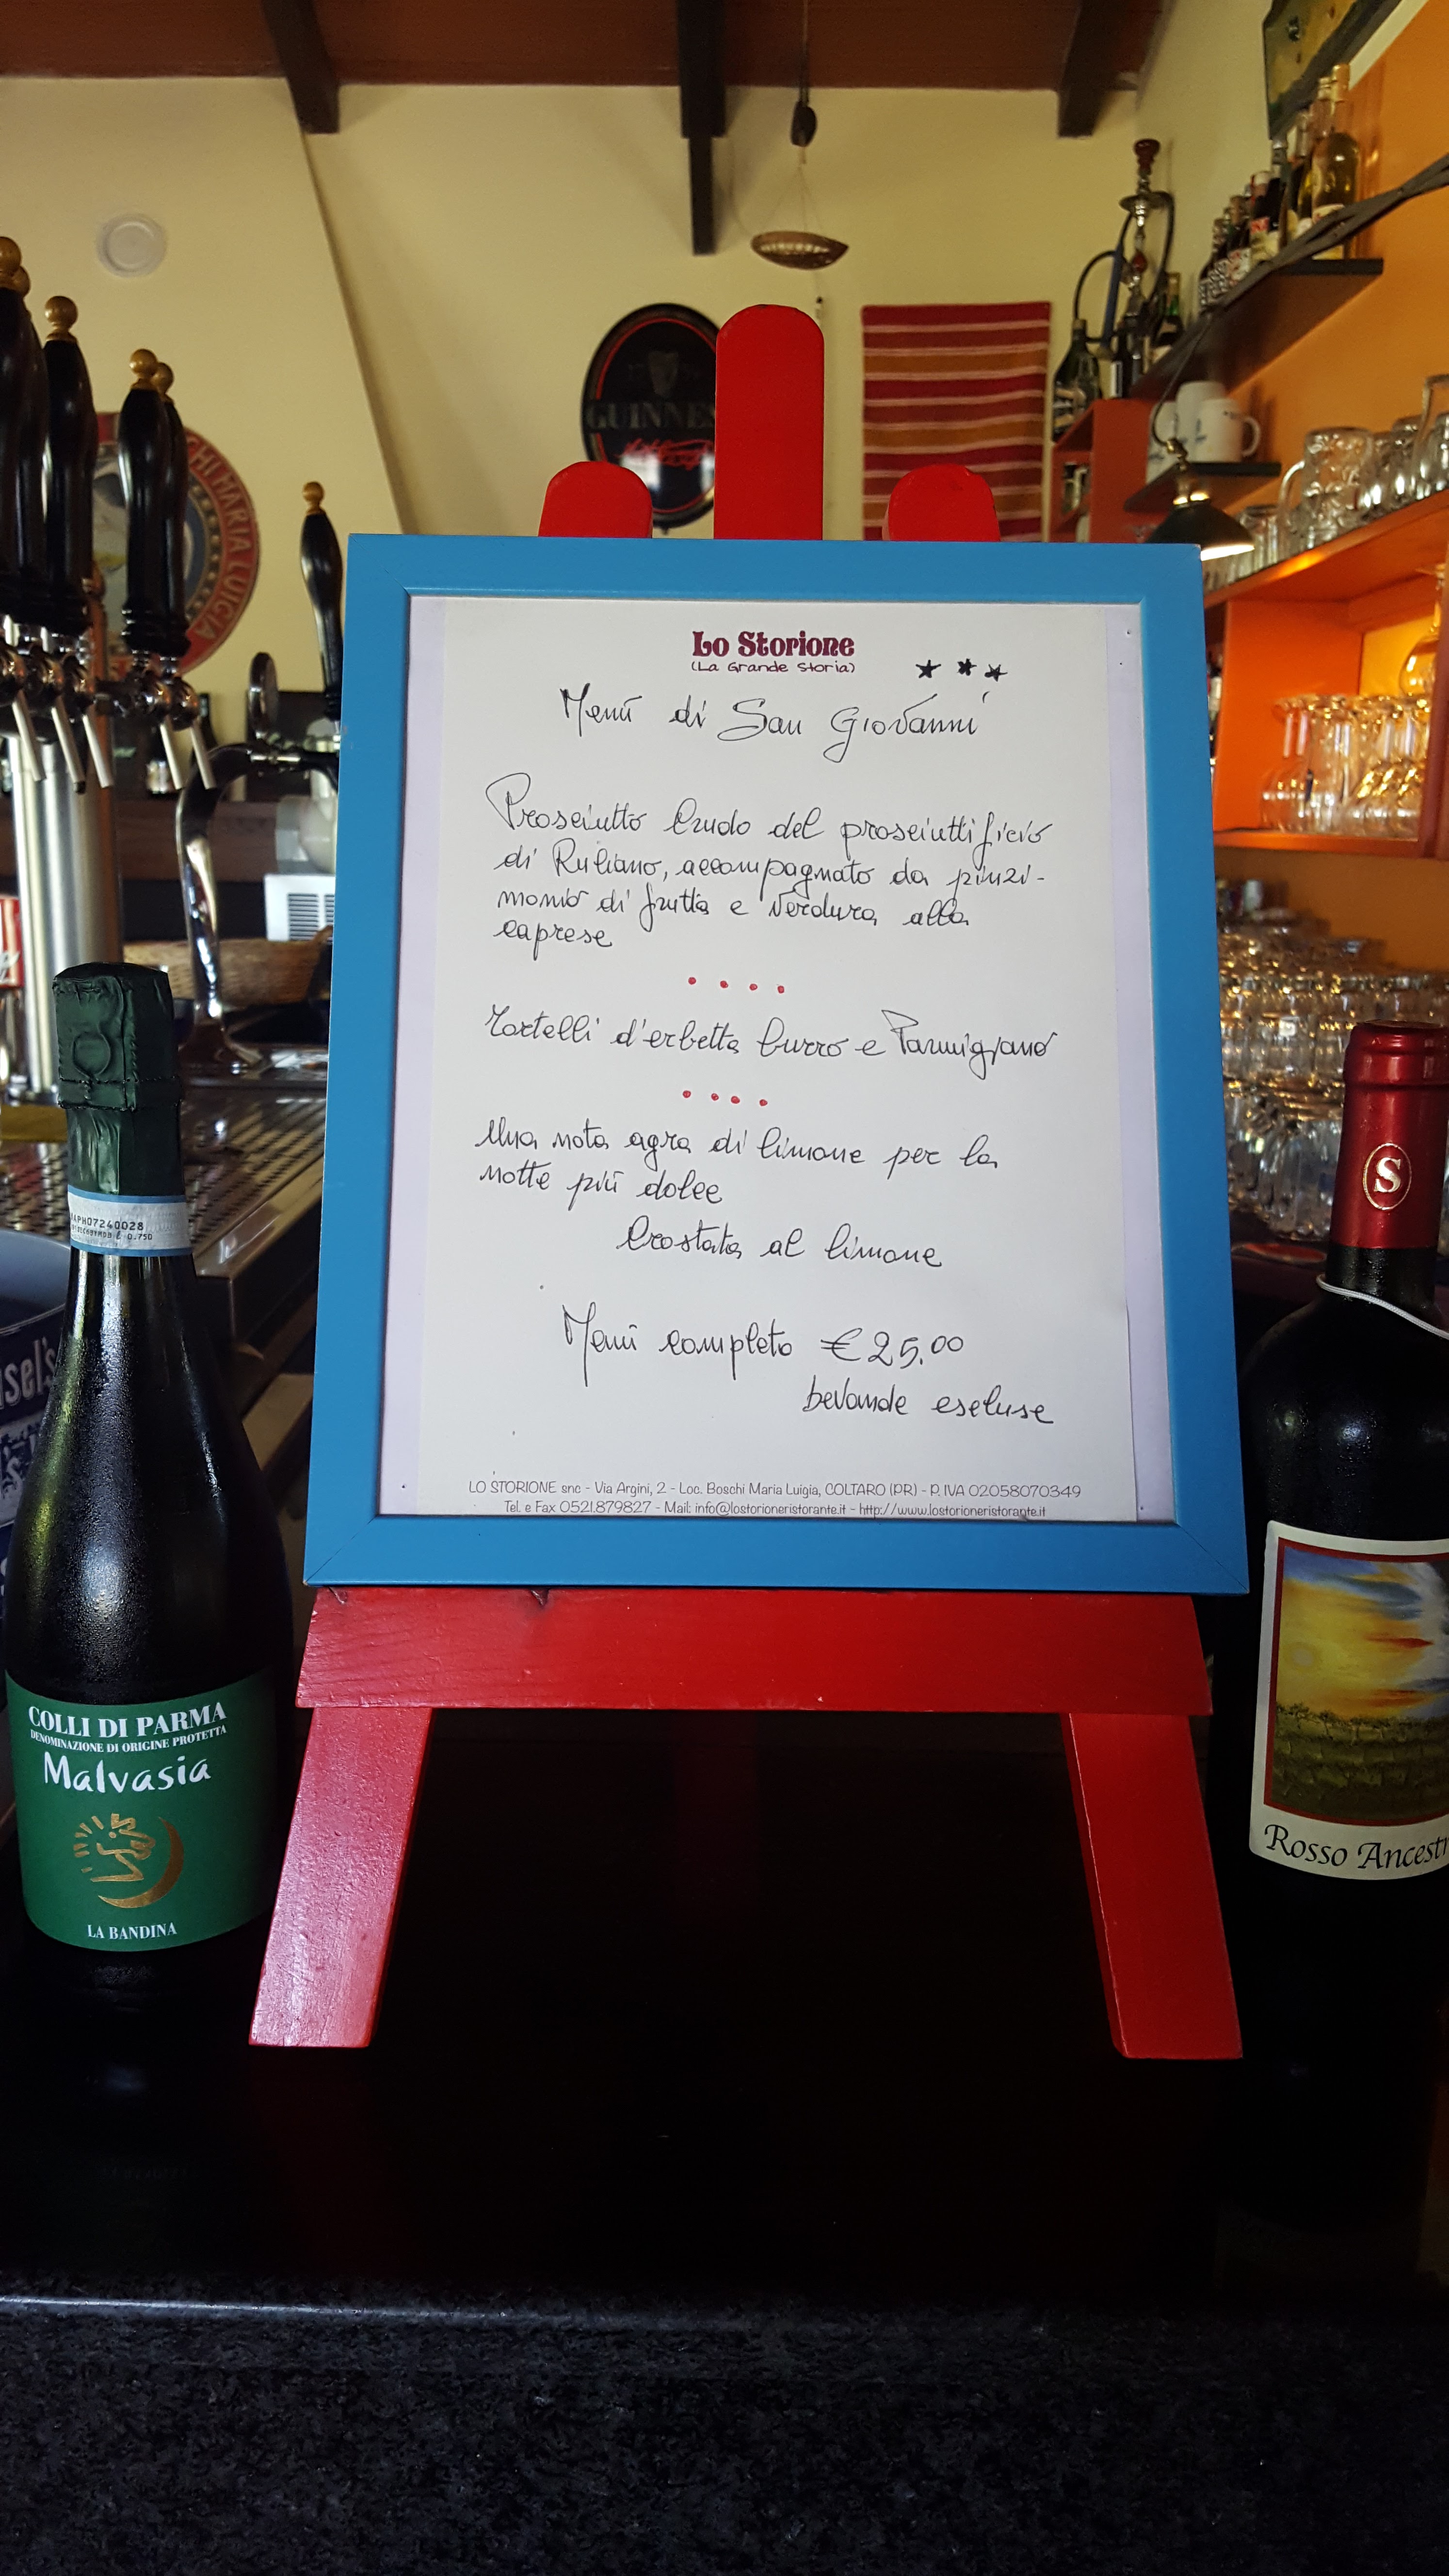 GUINNESS
CHI MARIA LUIGIA
Lo Storione
(La Grande Storia)
Menù di San Giovanni
Prosciutto Crudo del prosciuttificio
di Ruliano, accompagnato da pinzi-
monio di frutta e verdura alla
caprese
Tortelli d'erbetta burro e Parmigiano
Una nota agra di limone per la
notte più dolce
Crostata al limone
Menù completo €25,00
bevande escluse
LO STORIONE snc - Via Argini, 2 - Loc. Boschi Maria Luigia, COLTARO (PR) - P. IVA 02058070349
Tel. e Fax 0521.879827 - Mail: info@lostorioneristorante.it - http://www.lostorioneristorante.it
APH07240028
0.750
COLLI DI PARMA
DENOMINAZIONE DI ORIGINE PROTETTA
Malvasia
LA BANDINA
S
Rosso Ancestr